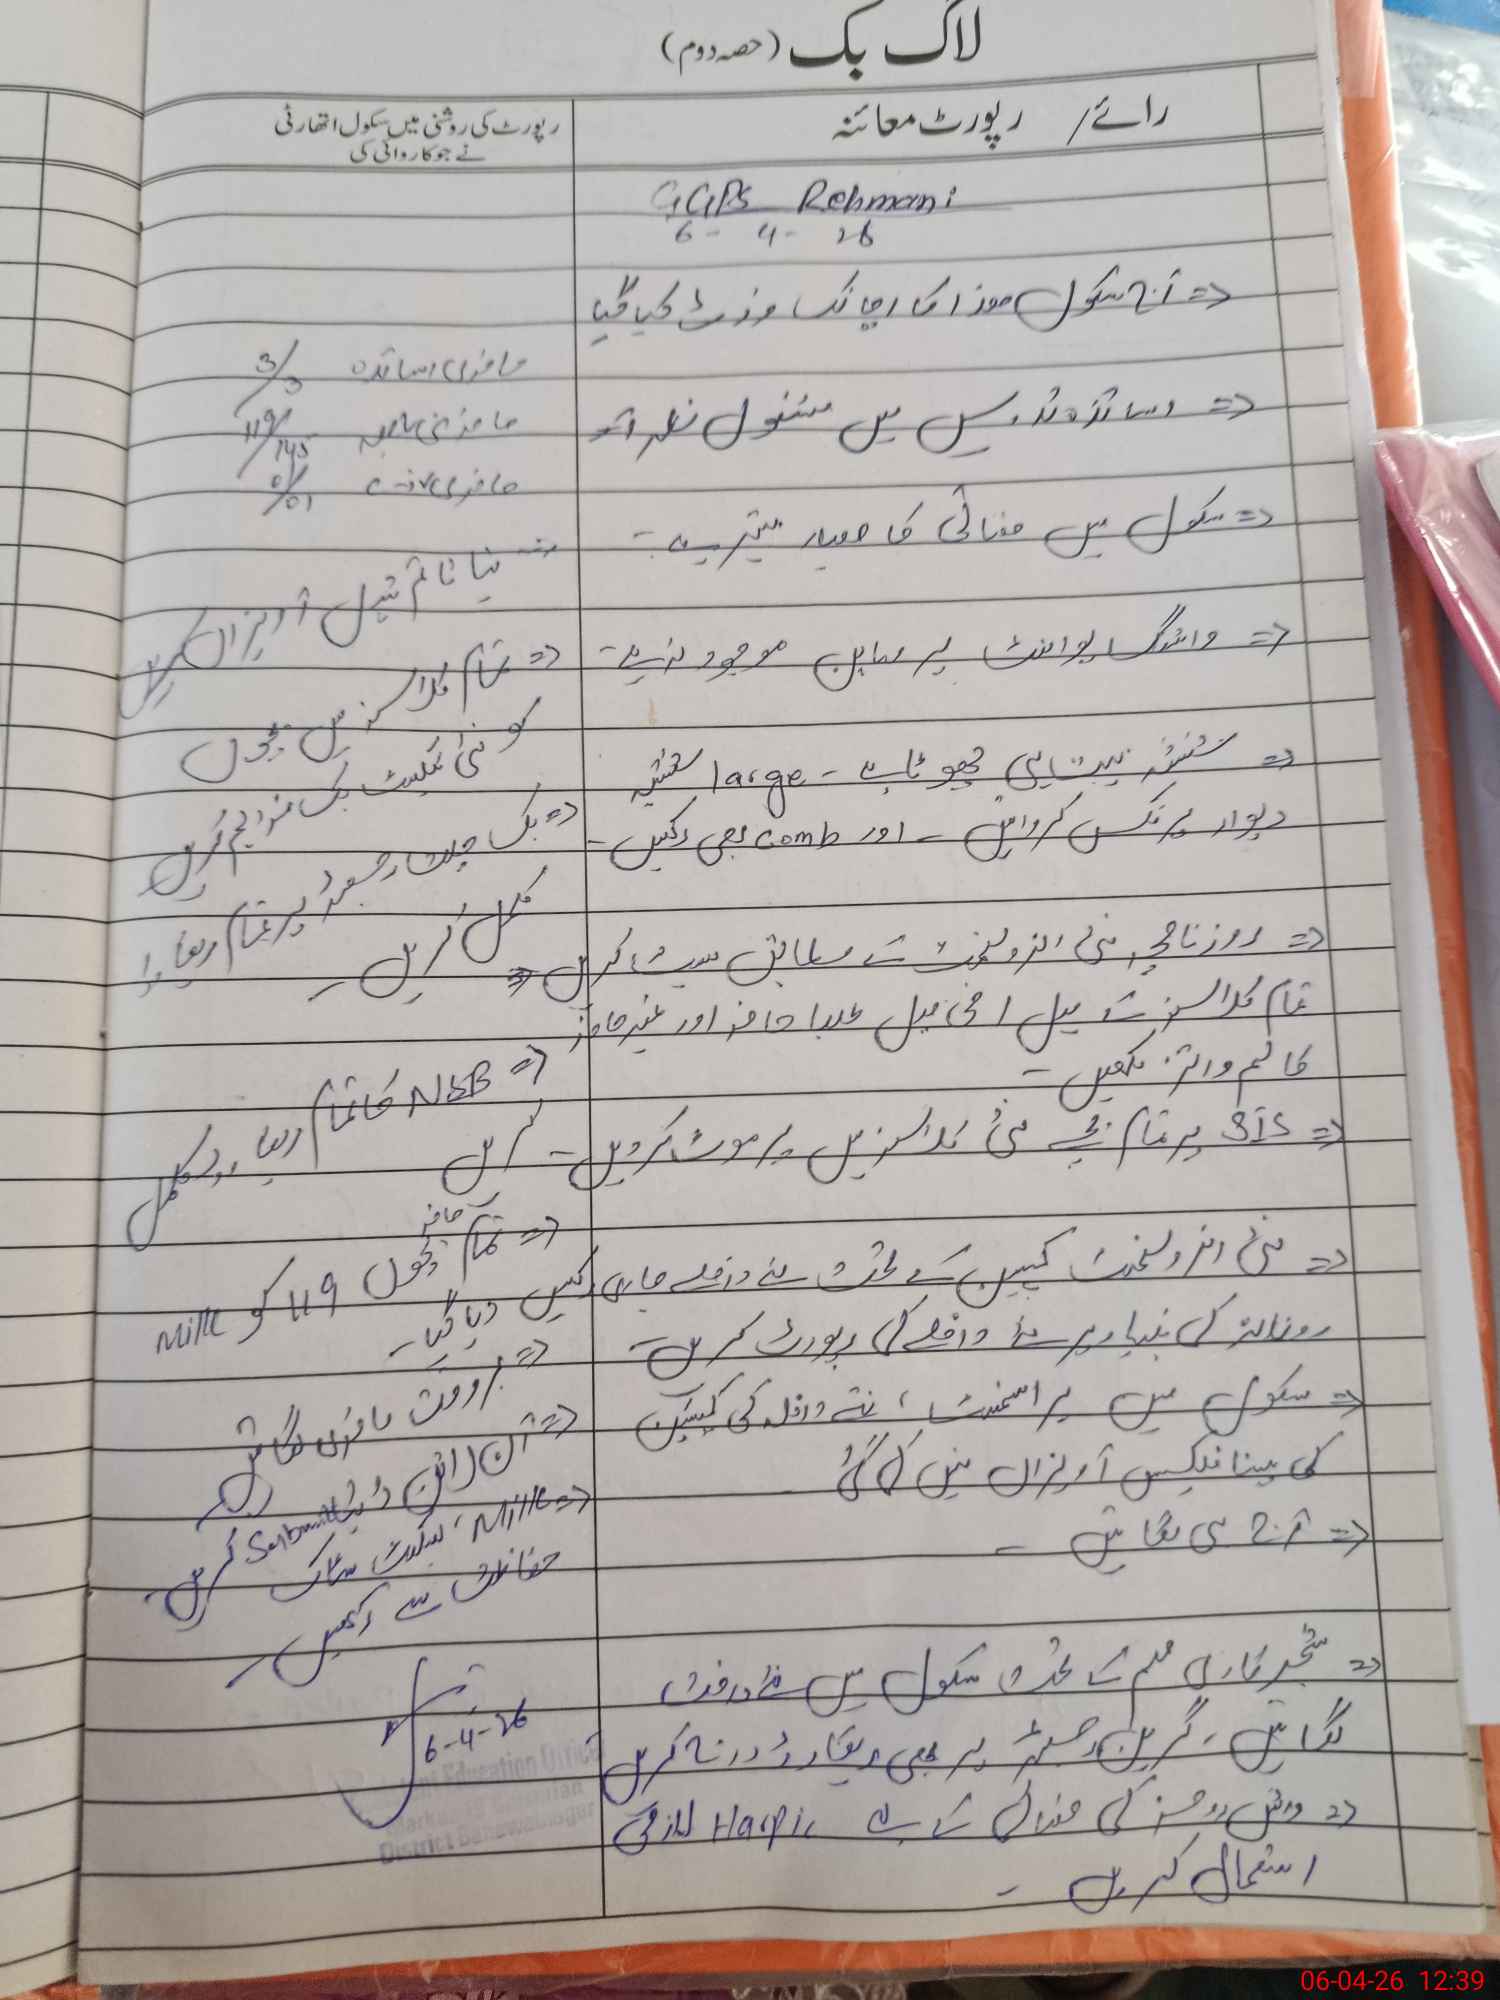 لاگ بک (حصہ دوم)
رائے / رپورٹ معائنہ
رپورٹ کی روشنی میں سکول اتھارٹی
نے جو کاروائی کی
GGPS Rehmani
6 - 4 - 26
⇐ آج سکول ھذا کا اچانک وزٹ کیا گیا
⇐ اساتذہ تدریس میں مشغول نظر آئے
⇐ سکول میں صفائی کا معیار بہتر ہے۔
⇐ واشنگ پوائنٹ پر صابن موجود نہ ہے۔
⇐ شیشہ نہایت ہی چھوٹا ہے۔ large شیشہ
دیوار پر فکس کروائیں۔ اور comb بھی رکھیں۔
⇐ روزنامچہ نئی انرولمنٹ کے مطابق سیٹ کریں
تمام کلاسز کے میل / فی میل طلبا حاضر اور غیر حاضر
کالم وائز لکھیں۔
⇐ SIS پر تمام بچے نئی کلاسز میں پرموٹ کردیں۔
⇐ نئی انرولمنٹ کمپین کے تحت نئے داخلے جاری رکھیں
روزانہ کی بنیاد پر نئے داخلے کی رپورٹ کریں۔
⇐ سکول میں نئے داخلہ کی کمپین
کی پینا فلیکس آویزاں نہیں کی گئی
⇐ آج ہی لگائیں۔
⇐ شجرکاری مہم کے تحت سکول میں نئے درخت
لگائیں، گرین رجسٹر پر بھی ریکارڈ درج کریں
⇐ واش رومز کی صفائی کے لیے Harpic لازمی
استعمال کریں۔
حاضری اساتذہ 3/3
حاضری طلبہ 119/145
حاضری 01/01
نیا ٹائم ٹیبل آویزاں کریں
⇐ تمام کلاسز میں بچوں
کو نئی ٹیکسٹ بک فراہم کریں
⇐ بک رجسٹر پر تمام ریکارڈ
مکمل کریں۔
⇐ NSB کا تمام ریکارڈ مکمل
کریں
⇐ تمام حاضر بچوں 119 کو Milk
دیا گیا۔
⇐ بروقت حاضری لگائیں
⇐ آن لائن ڈیٹا Submit کریں۔
⇐ Milk، بسکٹ سٹاک
حفاظت سے رکھیں۔
6-4-26
Education Officer
Markaz
District Bahawalnagar
06-04-26 12:39